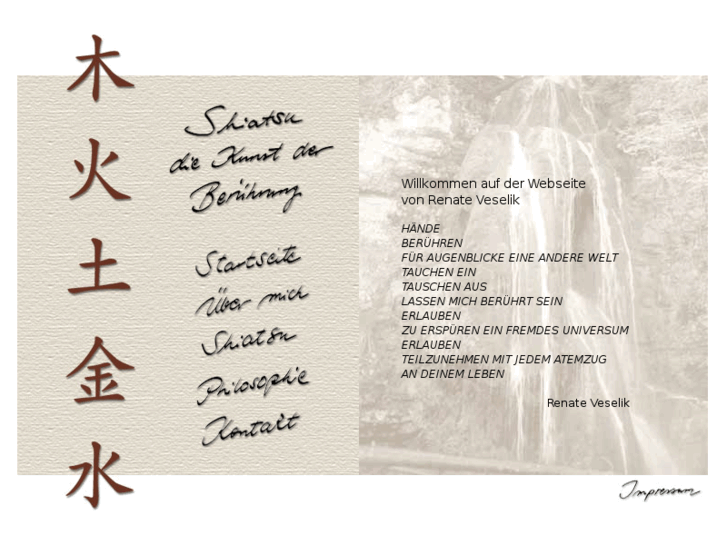 木
火
土
金
水
Shiatsu
die Kunst der
Berührung
Startseite
Über mich
Shiatsu
Philosophie
Kontakt
Willkommen auf der Webseite
von Renate Veselik
HÄNDE
BERÜHREN
FÜR AUGENBLICKE EINE ANDERE WELT
TAUCHEN EIN
TAUSCHEN AUS
LASSEN MICH BERÜHRT SEIN
ERLAUBEN
ZU ERSPÜREN EIN FREMDES UNIVERSUM
ERLAUBEN
TEILZUNEHMEN MIT JEDEM ATEMZUG
AN DEINEM LEBEN
Renate Veselik
Impressum